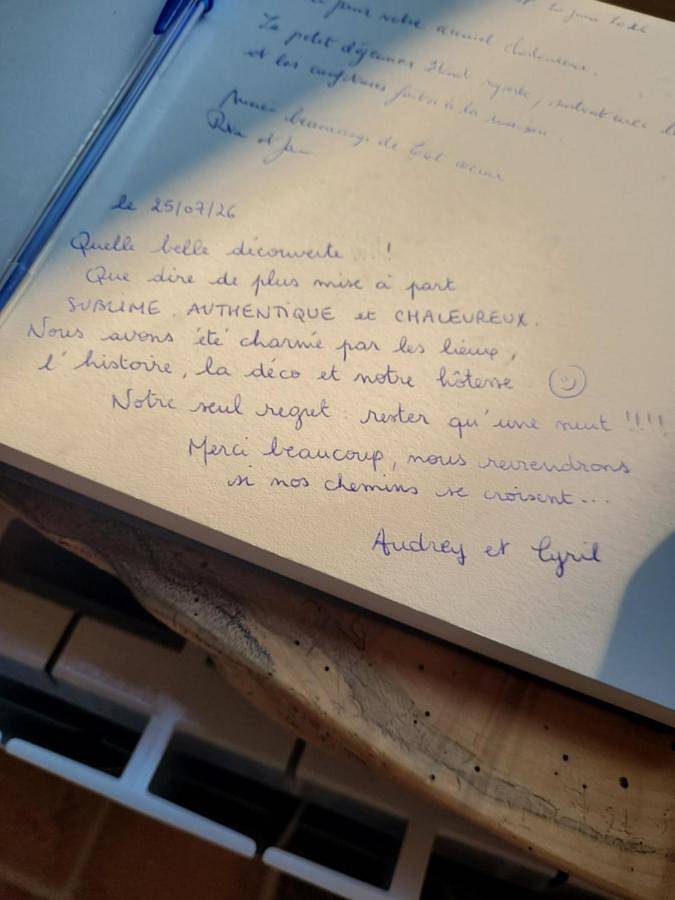 pour votre accueil chaleureux.
Le petit déjeuner
et les confitures faites à la maison
Merci beaucoup de tout coeur
le 25/07/26
Quelle belle découverte !
Que dire de plus mise à part
SUBLIME AUTHENTIQUE et CHALEUREUX.
Nous avons été charmé par les lieux,
l'histoire, la déco et notre hôtesse ☺
Notre seul regret : rester qu'une nuit !!!!
Merci beaucoup, nous reviendrons
si nos chemins se croisent...
Audrey et Cyril